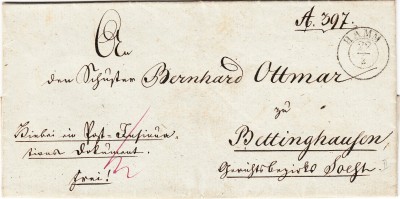 A. 397.
HAMM
29
2
An
den Schuster Bernhard Ottmar
zu
Bettinghausen,
Gerichtsbezirks Soest.
Hiebei ein Post-Insinua-
tions Dokument.
frei!